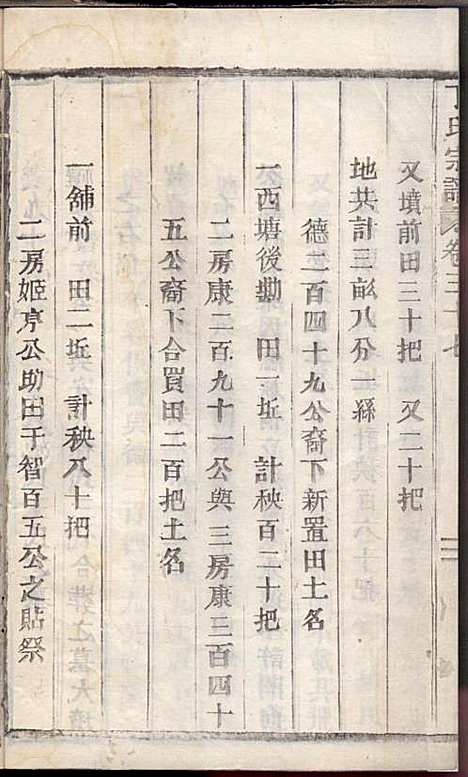 丁氏宗譜 卷三十七
又墳前田三十把 又二十把
地共計三畝八分一絲
德二百四十九公裔下新置田土名
一西塘後塝 田一坵 計秧百二十把
二房康二百九十一公與三房康三百四十
五公裔下合買田二百把土名
一舖前 田二坵 計秧八十把
二房姬亨公助田于智百五公之貼祭